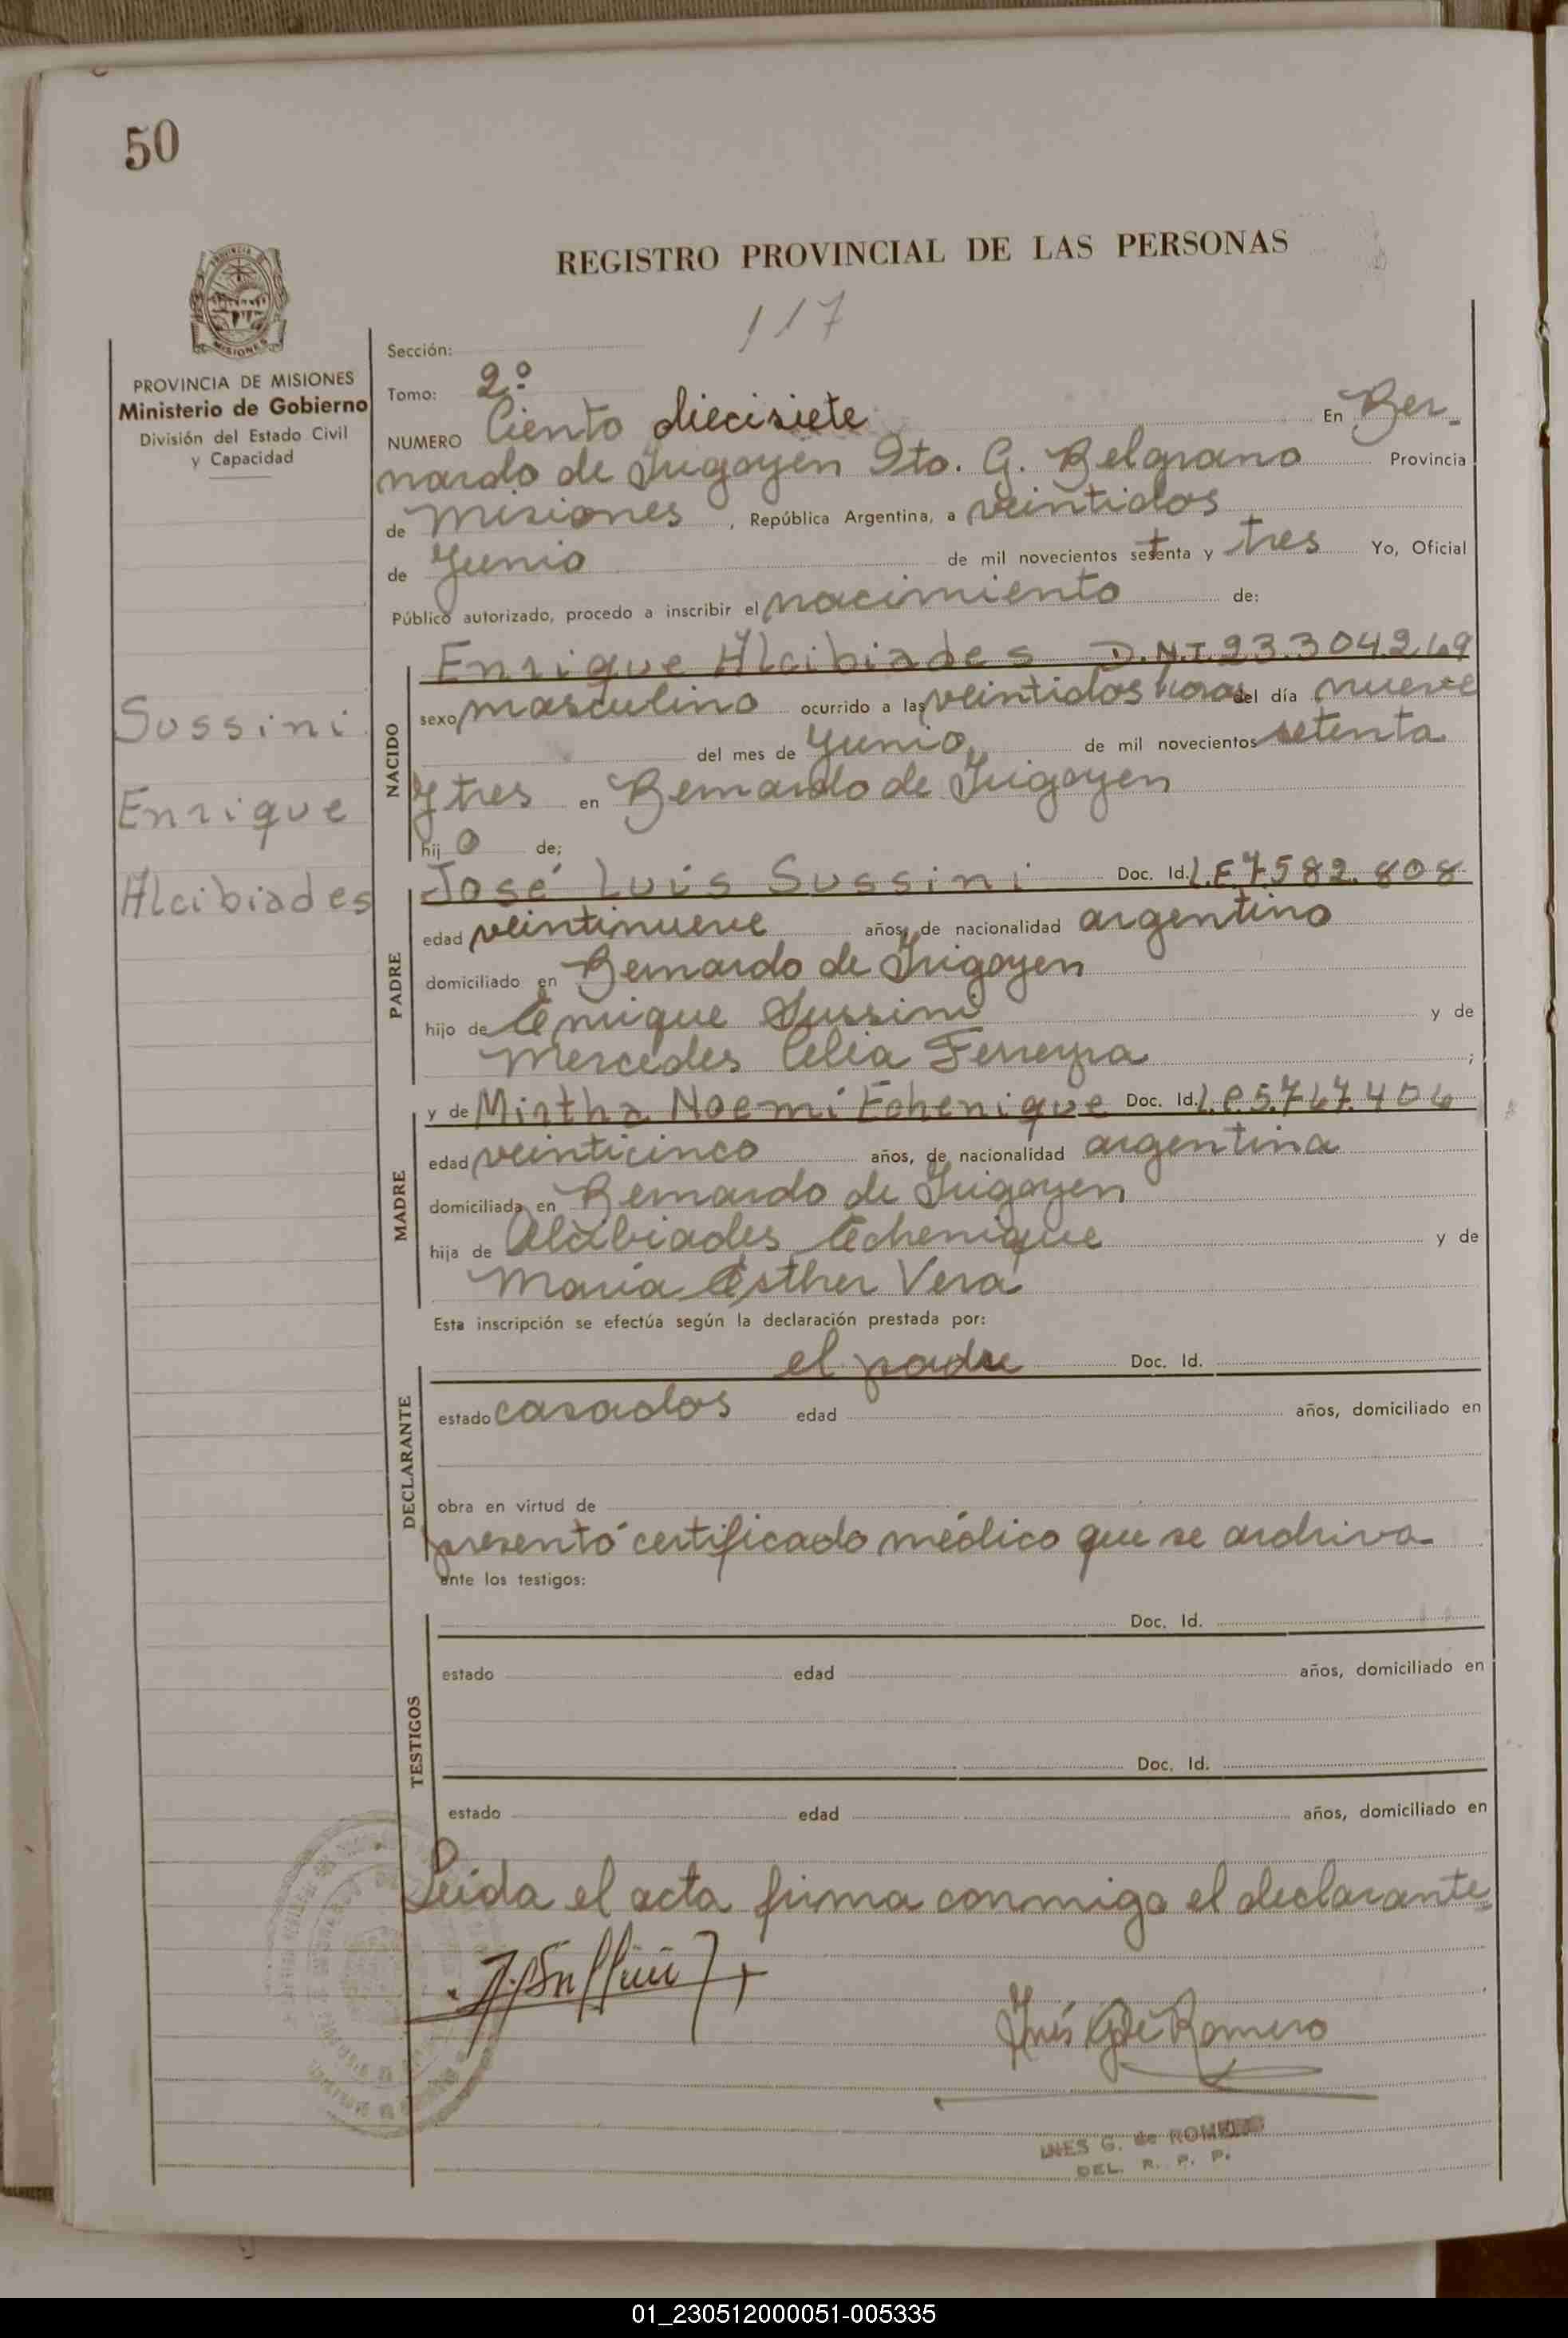 50
REGISTRO PROVINCIAL DE LAS PERSONAS
117
MISIONES
PROVINCIA DE MISIONES
Ministerio de Gobierno
División del Estado Civil
y Capacidad
Sussini
Enrique
Alcibiades
Sección:
Tomo: 2º
NUMERO Ciento diecisiete En Ber-
nardo de Irigoyen Dto. G. Belgrano Provincia
de Misiones, República Argentina, a veintidos
de Junio de mil novecientos setenta y tres Yo, Oficial
Público autorizado, procedo a inscribir el nacimiento de:
NACIDO
Enrique Alcibiades D.N.I. 23.304.269
sexo masculino ocurrido a las veintidos horas del día nueve
del mes de Junio de mil novecientos setenta
y tres en Bernardo de Irigoyen
hij o de;
PADRE
José Luis Sussini Doc. Id. L.E 7.582.808
edad veintinueve años, de nacionalidad argentino
domiciliado en Bernardo de Irigoyen
hijo de Enrique Sussini y de
Mercedes Celia Ferreyra ;
MADRE
y de Mirtha Noemi Echenique Doc. Id. L.C 5.767.406
edad veinticinco años, de nacionalidad argentina
domiciliada en Bernardo de Irigoyen
hija de Alcibiades Echenique y de
María Esther Vera
Esta inscripción se efectúa según la declaración prestada por:
DECLARANTE
el padre Doc. Id.
estado casados edad años, domiciliado en
obra en virtud de
presentó certificado médico que se archiva
ante los testigos:
TESTIGOS
Doc. Id.
estado edad años, domiciliado en
Doc. Id.
estado edad años, domiciliado en
Leida el acta firma conmigo el declarante
Inés G de Romero
INES G. de ROMERO
DEL. R. P. P.
01_230512000051-005335